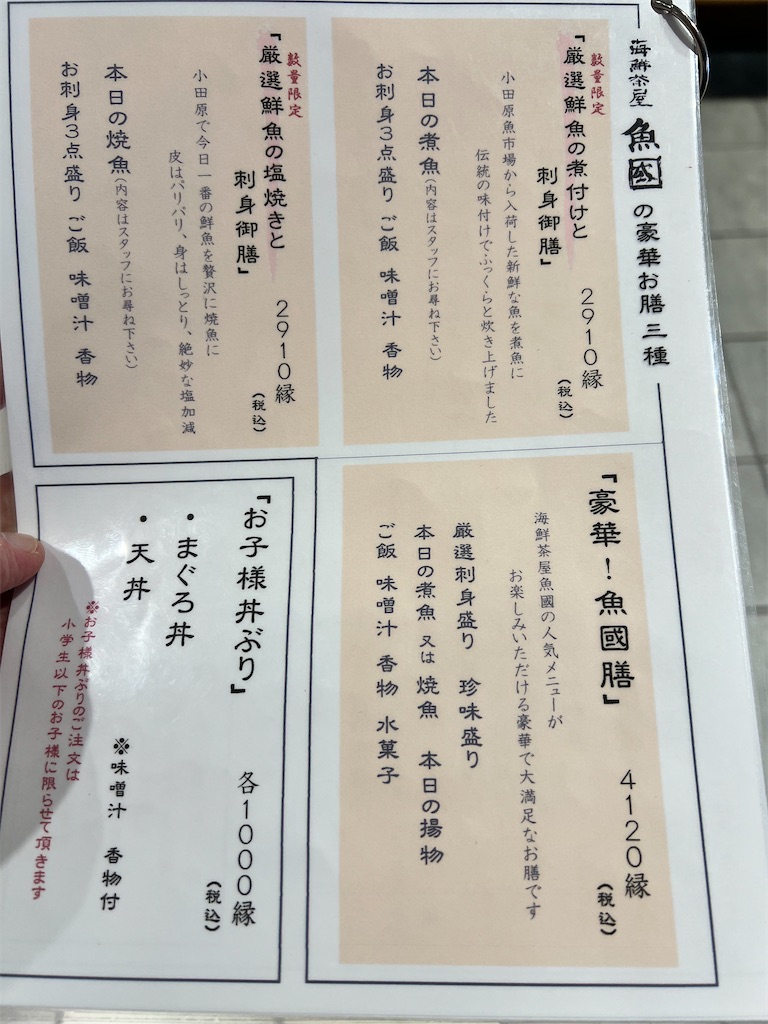 海鮮茶屋 魚國の豪華お膳三種
数量限定
『厳選鮮魚の煮付けと
刺身御膳』
2910縁
(税込)
小田原魚市場から入荷した新鮮な魚を煮魚に
伝統の味付けでふっくらと炊き上げました
本日の煮魚(内容はスタッフにお尋ね下さい)
お刺身3点盛り ご飯 味噌汁 香物
数量限定
『厳選鮮魚の塩焼きと
刺身御膳』
2910縁
(税込)
小田原で今日一番の鮮魚を贅沢に焼魚に
皮はパリパリ、身はしっとり、絶妙な塩加減
本日の焼魚(内容はスタッフにお尋ね下さい)
お刺身3点盛り ご飯 味噌汁 香物
『豪華!魚國膳』
4120縁
(税込)
海鮮茶屋魚國の人気メニューが
お楽しみいただける豪華で大満足なお膳です
厳選刺身盛り 珍味盛り
本日の煮魚 又は 焼魚 本日の揚物
ご飯 味噌汁 香物 水菓子
『お子様丼ぶり』
各1000縁
(税込)
・まぐろ丼
・天丼
※味噌汁 香物付
※お子様丼ぶりのご注文は
小学生以下のお子様に限らせて頂きます